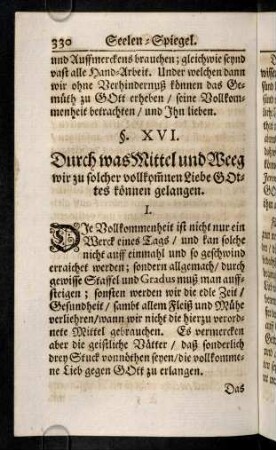 330 Seelen-Spiegel.
und Auffmerckens brauchen; gleichwie seynd
vast alle Hand-Arbeit. Under welchen dann
wir ohne Verhindernuß können das Ge-
müth zu GOtt erheben / seine Vollkom-
menheit betrachten / und Ihn lieben.
§. XVI.
Durch was Mittel und Weeg
wir zu solcher vollkom̃nen Liebe GOt-
tes können gelangen.
I.
DIe Vollkommenheit ist nicht nur ein
Werck eines Tags / und kan solche
nicht auff einmahl und so geschwind
erraichet werden; sondern allgemach / durch
gewisse Staffel und Gradus muß man auff-
steigen; sonsten werden wir die edle Zeit /
Gesundheit / sambt allem Fleiß und Mühe
verliehren / wann wir nicht die hierzu verord-
nete Mittel gebrauchen. Es vermercken
aber die geistliche Vätter / daß sonderlich
drey Stuck vonnöthen seyen / die vollkomme-
ne Lieb gegen GOtt zu erlangen.
Das